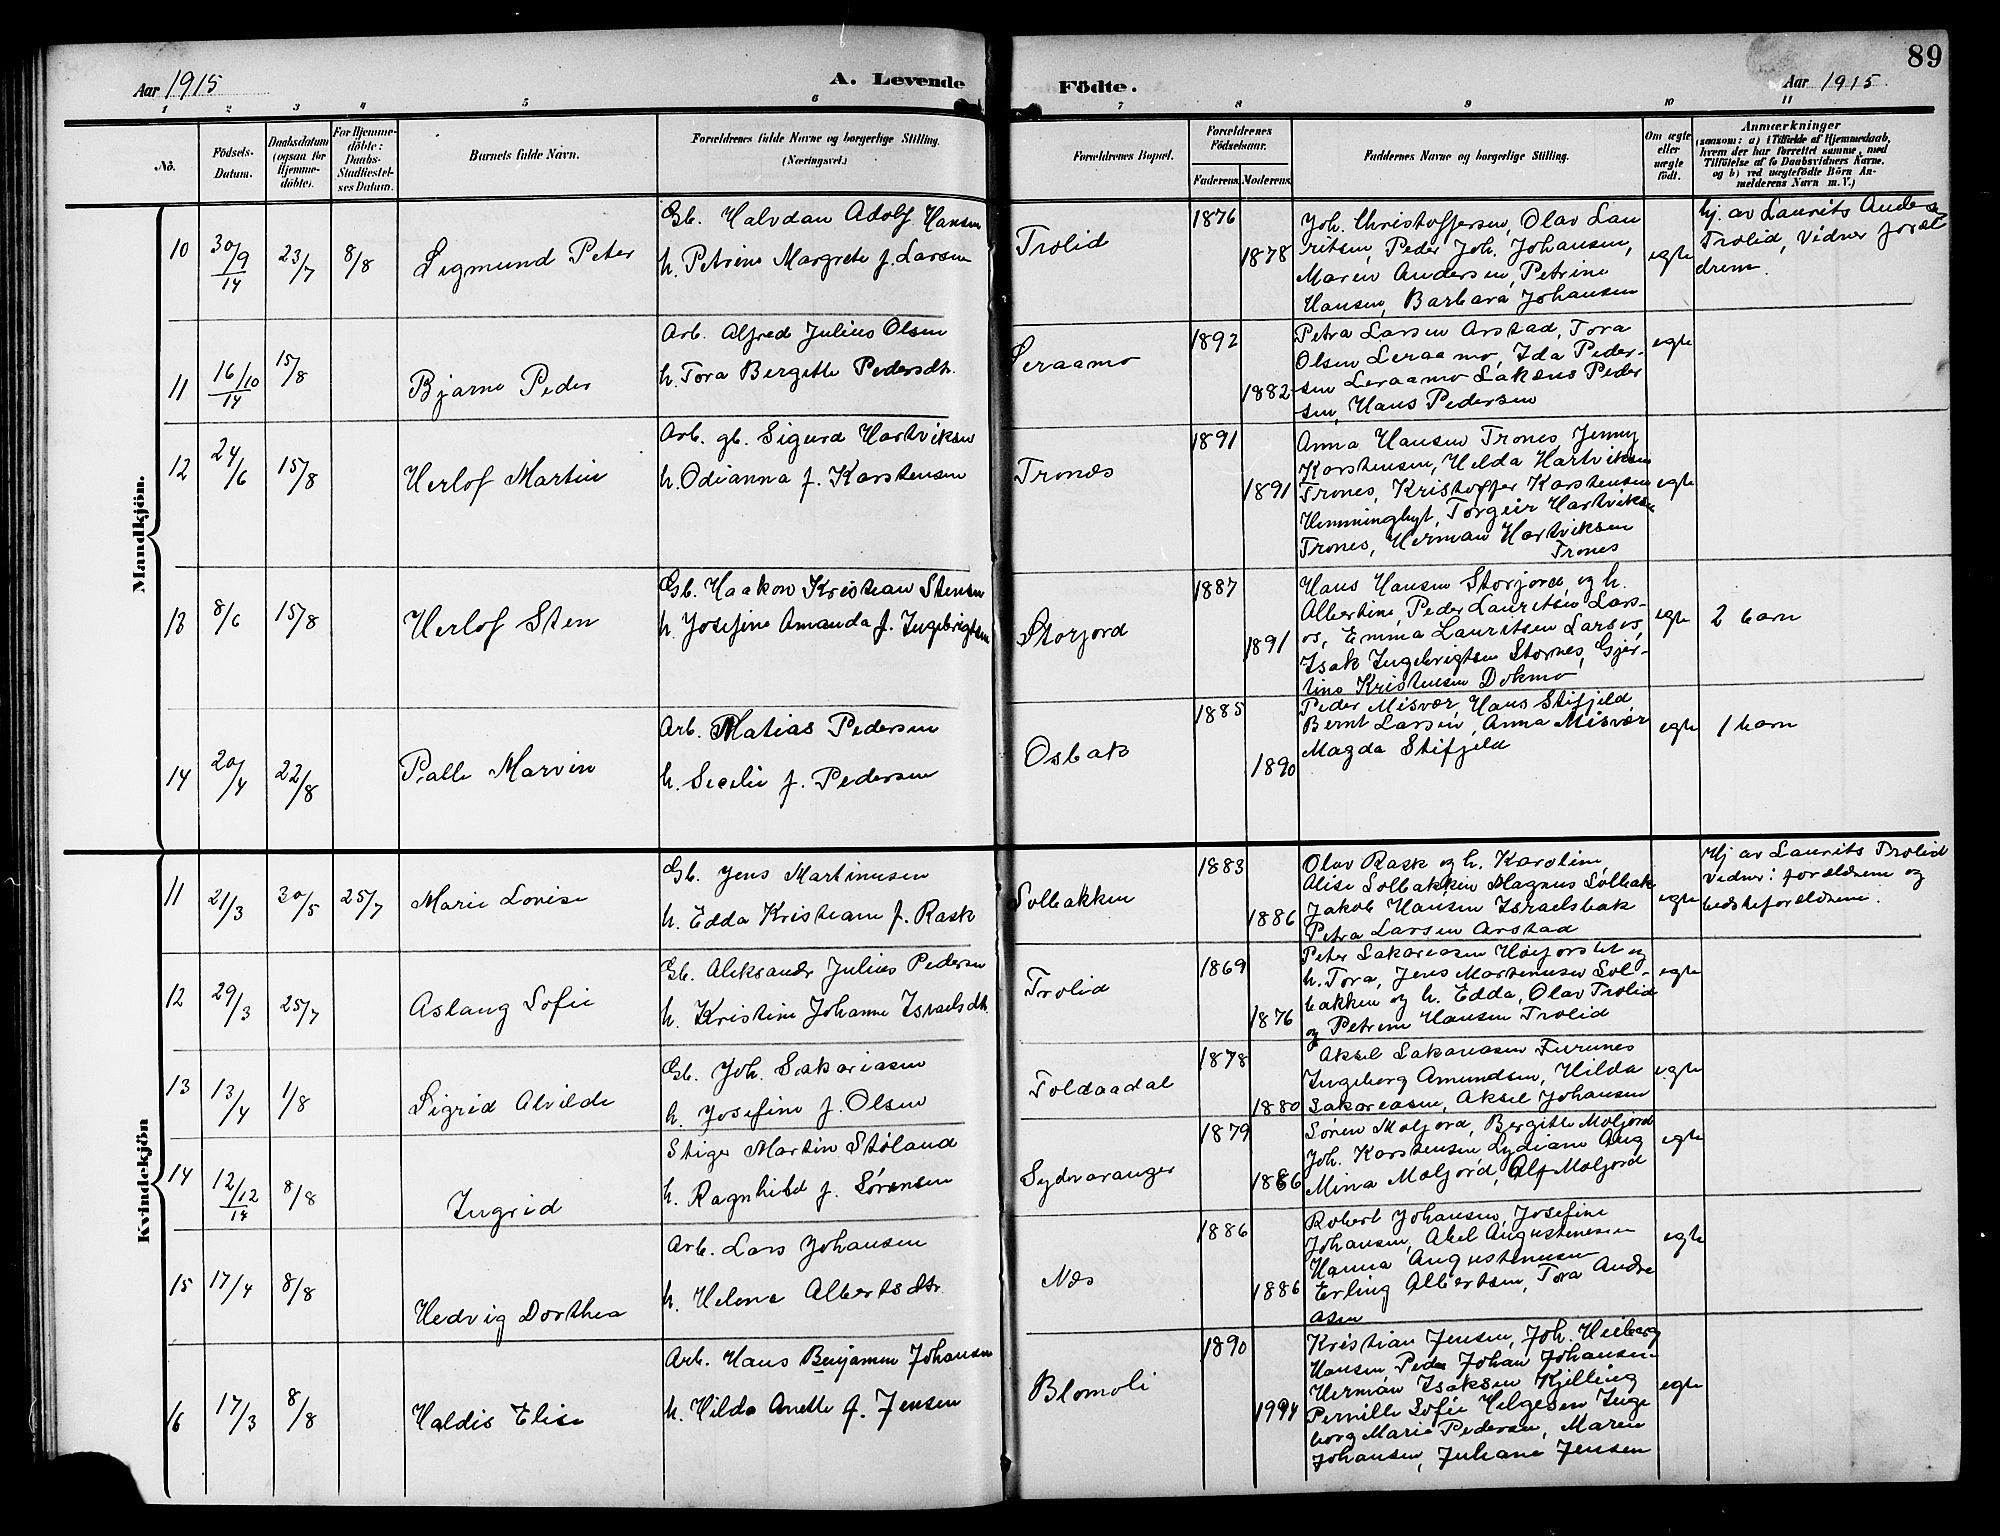 89
Aar 1915
A. Levende Födte.
Aar 1915
1 2 3 4 5 6 7 8 9 10 11
No.
Födsels-Datum.
Daabsdatum (ogsaa for Hjemme-döbte).
For Hjemme-döbte: Daabs-Stadfæstel-ses Datum.
Barnets fulde Navn.
Forældrenes fulde Navne og borgerlige Stilling.
(Næringsvei.)
Forældrenes Bopæl.
Forældrenes Födselsaar.
Faderens. Moderens.
Faddernes Navne og borgerlige Stilling.
Om ægte eller uægte født.
Anmærkninger
(saasom: a) i Tilfælde af Hjemmedaab,
hvem der har forrettet samme, med
Tilföielse af to Daabsvidners Navne.
og b) ved uægtefödte Börn An-
melderens Navn m. V.)
Mandkjön.
10 30/9 14 23/7 8/8 Sigmund Peter
Gb. Halvdan Adolf Hansen
h. Petrine Margrete f. Larsen
Trolid
1876
1878
Joh. Christoffersen, Olav Lau
ritsen, Peder Joh. Johansen,
Maren Andersen, Petrine
Hansen, Barbara Johansen
egte
hj. av Laurits Anders
Trolid, Vidner foræl
drene.
11 16/10 14 15/8 Bjarne Peder
Arb. Alfred Julius Olsen
h. Tora Bergitte Pedersdt.
Leraamo
1892
1882
Petra Larsen Arstad, Tora
Olsen Leraamo, Ida Peder-
sen Leraamo Sakæus Peder
sen, Hans Pedersen
egte
12 24/6 15/8 Herlof Martin
Arb. gb. Sigurd Hartviksen
h. Odianna f. Karstensen
Tronæs
1891
1891
Anna Hansen Trones, Jenny
Karstensen, Hilda Hartviksen
Trones, Kristoffer Karstensen
Hemminghyt, Torgeir Hartviksen
Trones, Herman Hartviksen
Trones
egte
13 8/6 15/8 Herlof Sten
Gb. Haakon Kristian Stensen
h. Josefine Amanda f. Ingebrigtsen
Storjord
1887
1891
Hans Hansen Storjord, og h.
Albertine, Peder Lauritsen Lars-
os, Emma Lauritsen Larsos,
Isak Ingebrigtsen Stornes, Gjer-
tine Kristensen Dokmo
egte
2 barn
14 20/4 22/8 Palle Marvin
Arb. Matias Pedersen
h. Secelie f. Pedersen
Osbak
1885
1890
Peder Misvær, Hans Stifjeld
Bernt Larsen, Anna Misvær
Magda Stifjeld
egte
1 barn
Kvindekjön
11 21/3 30/5 25/7 Marie Lovise
Gb. Jens Martinusen
h. Edda Kristiane f. Rask
Solbakken
1883
1886
Olav Rask og h. Karoline
Alise Solbakken Magnus Solbak
Jakob Hansen Israelsbak
Petra Larsen Arstad
egte
Hj av Laurits Trolid
Vidner: forældrene og
bedsteforældrene.
12 29/3 25/7 Aslaug Sofie
Gb. Aleksandr Julius Pedersen
h. Kristine Johanne Israelsdt.
Trolid
1869
1876
Peter Sakariasen Høiforslet og
h. Tora, Jens Martinusen Sol-
bakken og h. Edda, Olav Trolid
og Petrine Hansen Trolid
egte
13 13/4 1/8 Sigrid Alvilde
Gb. Joh. Sakariasen
h. Josefine f. Olsen
Toldaadal
1878
1880
Aksel Sakariasen Furunes
Ingeborg Amundsen, Hilda
Sakariasen, Aksel Johansen
egte
14 12/12 14 8/8 Ingrid
Stiger Martin Støland
h. Ragnhild f. Sørensen
Sydvaranger
1879
1886
Søren Moljord, Bergitte Moljord
Joh. Karstensen Lydiane Aug
Mina Moljord, Alf Moljord
egte
15 17/4 8/8 Hedvig Dorthea
Arb. Lars Johansen
h. Helene Albertsdtr
Næs
1886
1886
Robert Johansen, Josefine
Johansen, Abel Augustinusen
Hanna Augustinusen
Erling Albertsen, Tora Andre
asen
egte
16 17/3 8/8 Haldis Elise
Arb. Hans Benjamin Johansen
h. Hilda Anette f. Jensen
Blomoli
1890
1994
Kristian Jensen, Joh. Heiberg
Hansen, Peder Johan Johansen
Herman Isaksen Kjelling
Pernille Sofie Helgesen Inge
borg Marie Pedersen, Maren
Johansen, Juliane Jensen
egte